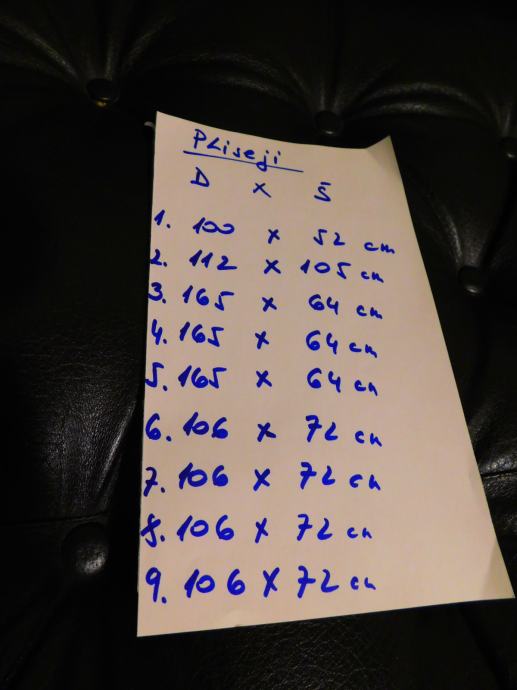 Pliseji
D x Š
1. 100 x 52 cm
2. 112 x 105 cm
3. 165 x 64 cm
4. 165 x 64 cm
5. 165 x 64 cm
6. 106 x 72 cm
7. 106 x 72 cm
8. 106 x 72 cm
9. 106 x 72 cm